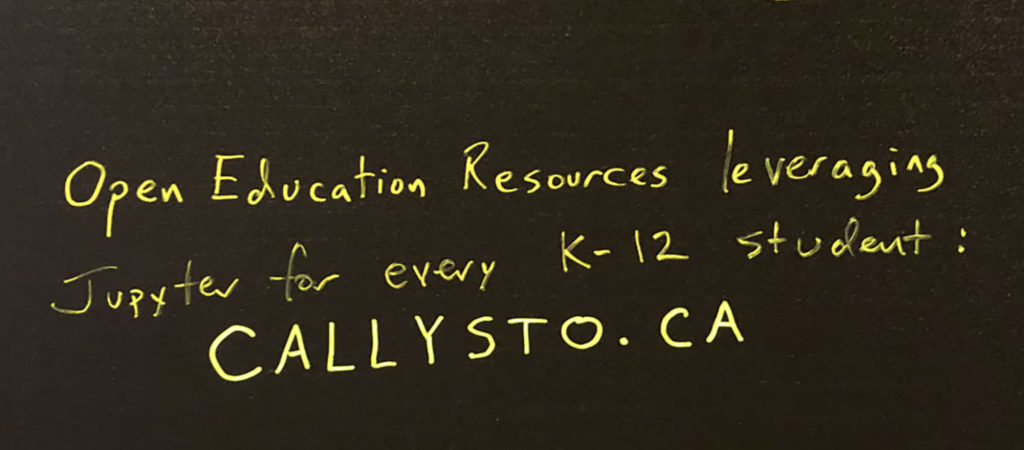 Open Education Resources leveraging
Jupyter for every K-12 student:
CALLYSTO.CA